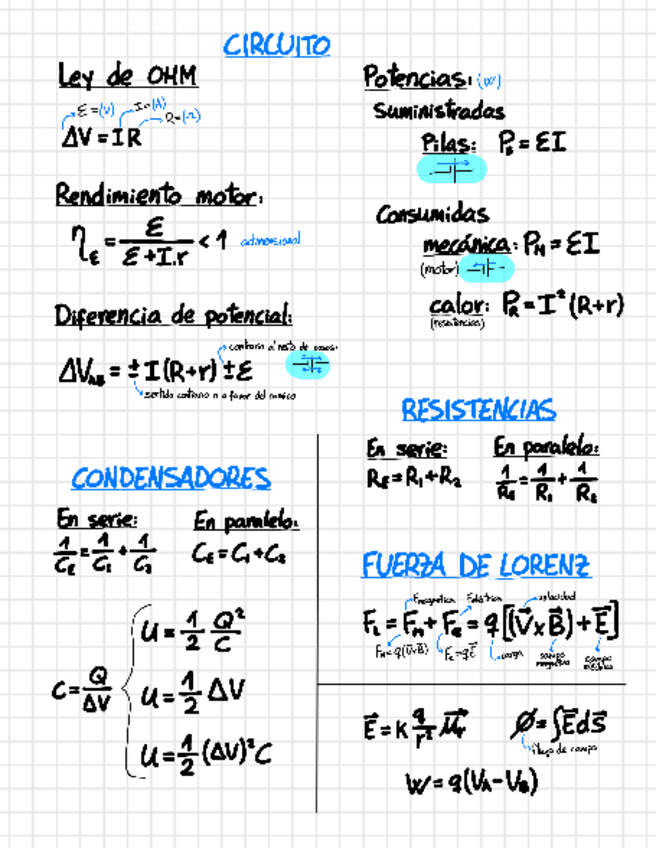 CIRCUITO
Ley de OHM
ε=(V) I=(A) R=(Ω)
ΔV = I R
Rendimiento motor:
η_ε = ε / (ε + I.r) < 1 adimensional
Diferencia de potencial:
contrario al resto de cosas
ΔV_AB = ± I (R+r) ± ε
sentido contrario o a favor del
Potencias: (W)
Suministradas
Pilas: P_ε = εI
Consumidas
mecánica: P_M = εI
(motor)
calor: P_R = I² (R+r)
(resistencias)
RESISTENCIAS
En serie: En paralelo:
R_E = R₁ + R₂ 1/R_E = 1/R₁ + 1/R₂
CONDENSADORES
En serie: En paralelo:
1/C_E = 1/C₁ + 1/C₂ C_E = C₁ + C₂
C = Q/ΔV
U = 1/2 Q²/C
U = 1/2 ΔV
U = 1/2 (ΔV)² C
FUERZA DE LORENZ
F.magnética F.eléctrica velocidad
F_L = F_M + F_E = q[(V⃗ x B⃗) + E⃗]
F_M = q(V⃗xB⃗) F_E = qE⃗ carga campo magnético campo eléctrico
E⃗ = K q/r² μ⃗r Ø = ∫E⃗ds⃗
flujo de campo
W = q(V_A - V_B)